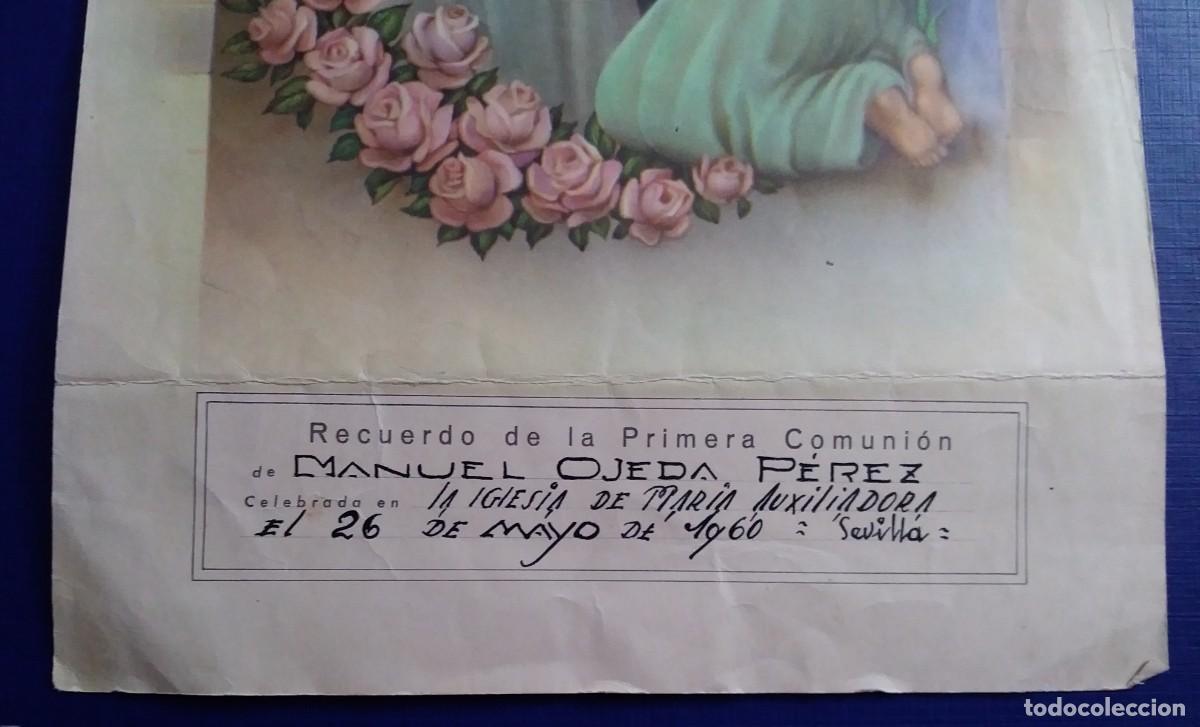 Recuerdo de la Primera Comunión
de MANUEL OJEDA PÉREZ
Celebrada en LA IGLESIA DE MARÍA AUXILIADORA
El 26 DE MAYO DE 1960 = Sevilla =
todocoleccion